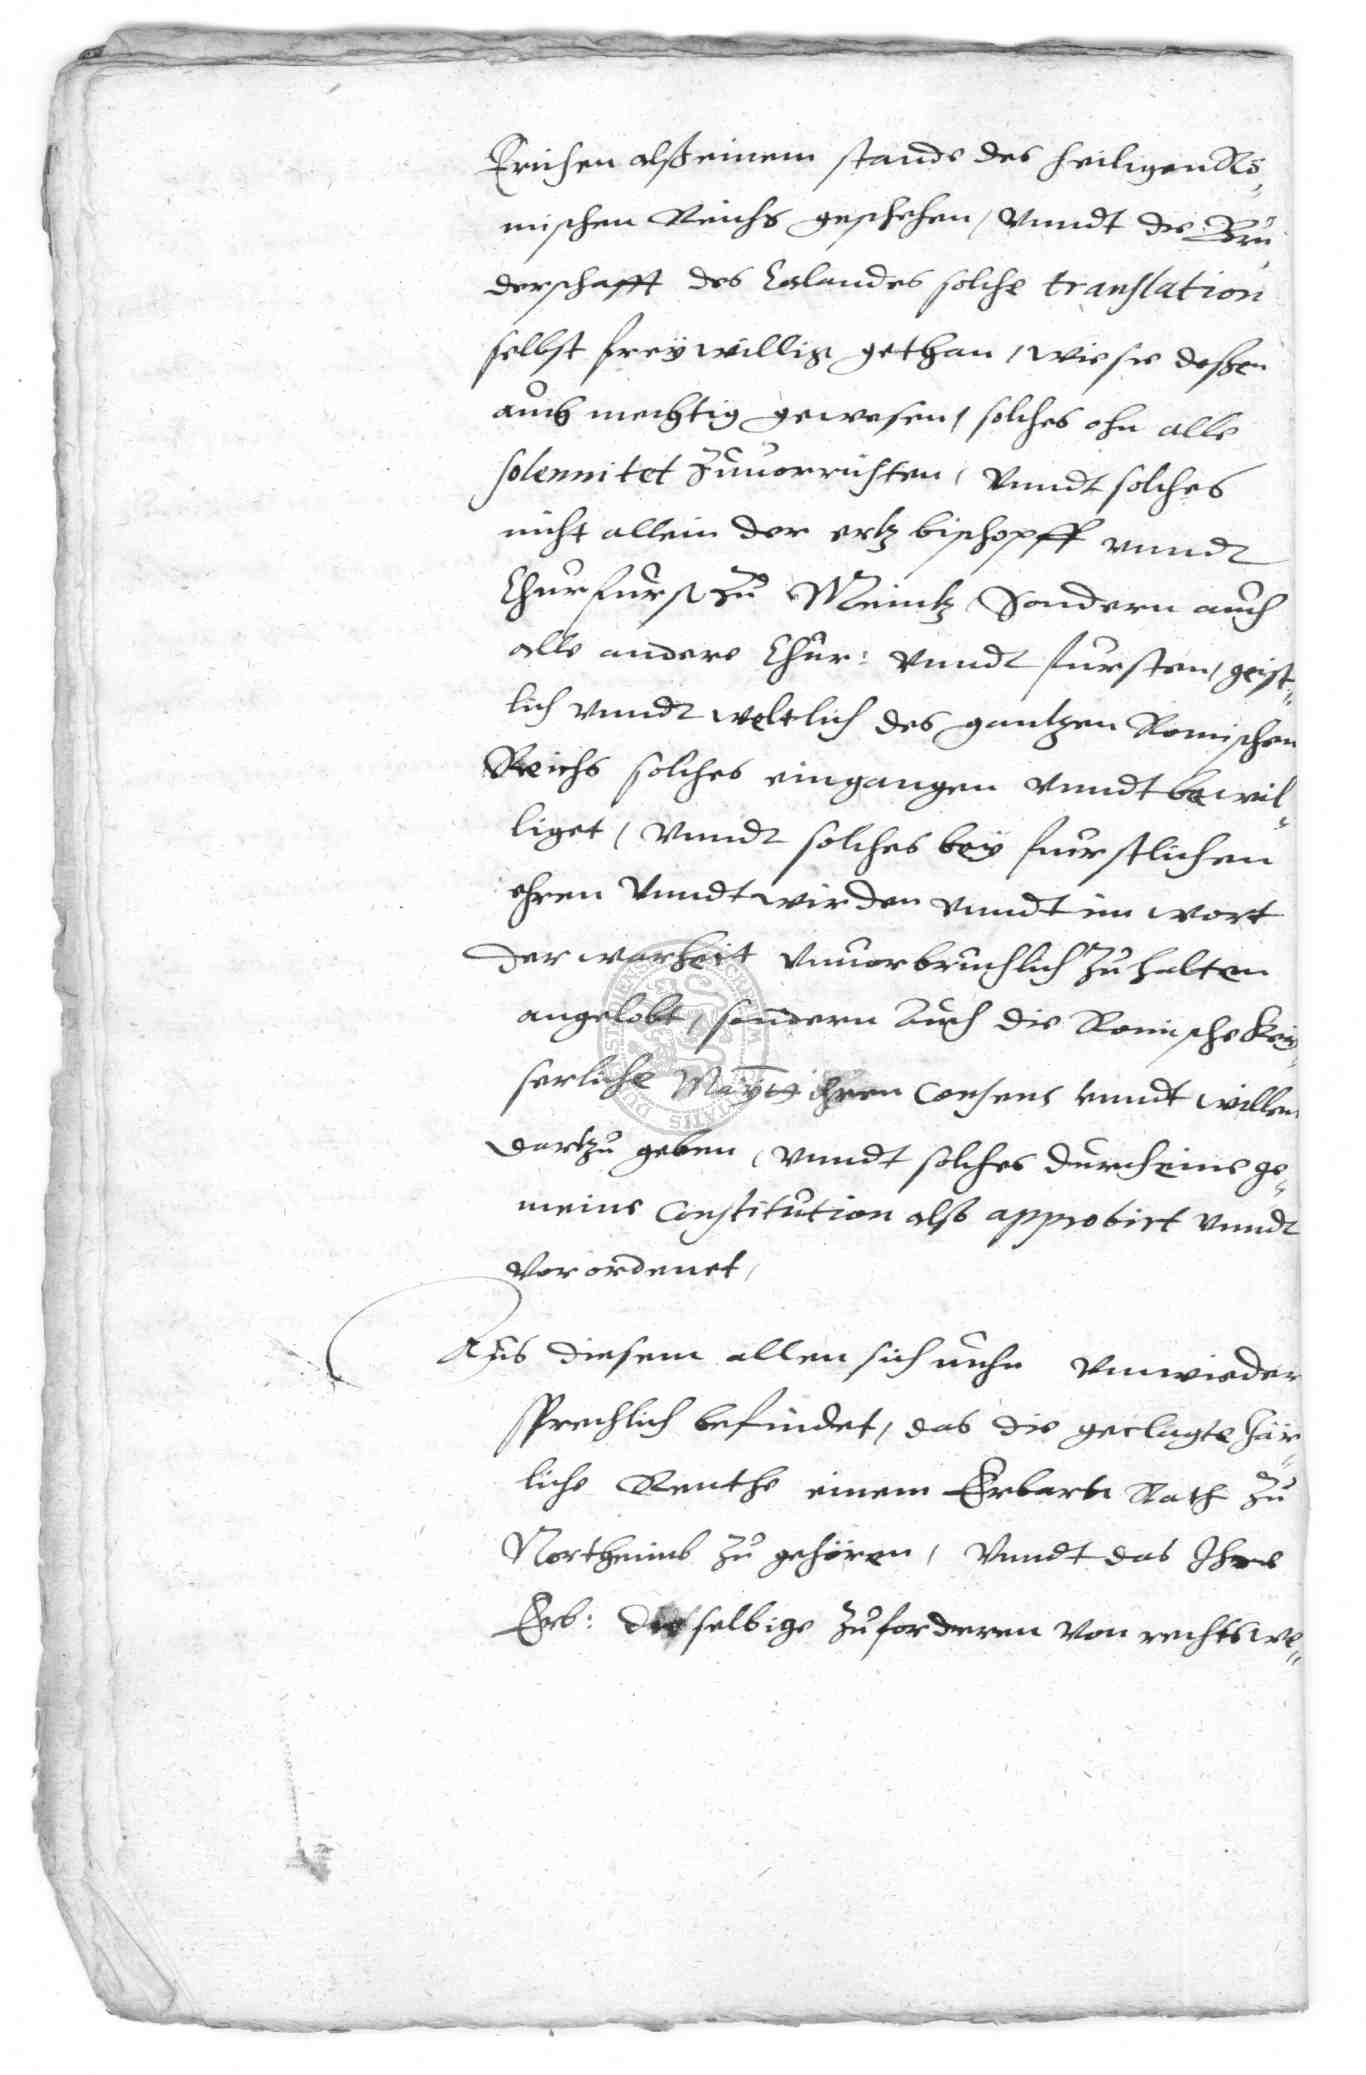 Erichen alß einem stande des heiligen Rö-
mischen Reichs geschehen, vnndt die Brü
derschafft des Calandes solche translation
selbst freÿwillig gethan, wie sie deßen
auch mechtig gewesen, solches ohn alle
solennitet zuuorrichten, vnndt solches
nicht allein der ertzbischopff vnndt
Churfurst zu Meintz Sondern auch
alle andere Chur: vnndt fursten, geist-
lich vnndt weltlich des gantzen Romischen
Reichs solches eingangen vnndt bewil-
liget, vnndt solches beÿ furstlichen
ehren vnndt wirden vnndt im wort
der warheit vnuorbruchlich zuhalten
angelobt, sondern auch die Romische Keÿ-
serliche Maÿtt ihren Consens vnndt willen
dartzu geben, vnndt solches durch eine ge-
meine Constitution also approbirt vnndt
vorordenet,
Aus diesem allen sich nuhn vnwieder
sprechlich befindet, das die geclagte jär-
liche Renthe einem Erbarn Rath zu
Northeimb zu gehören, vnndt das Ihre
Erb: dieselbige zuforderen von rechtswe-